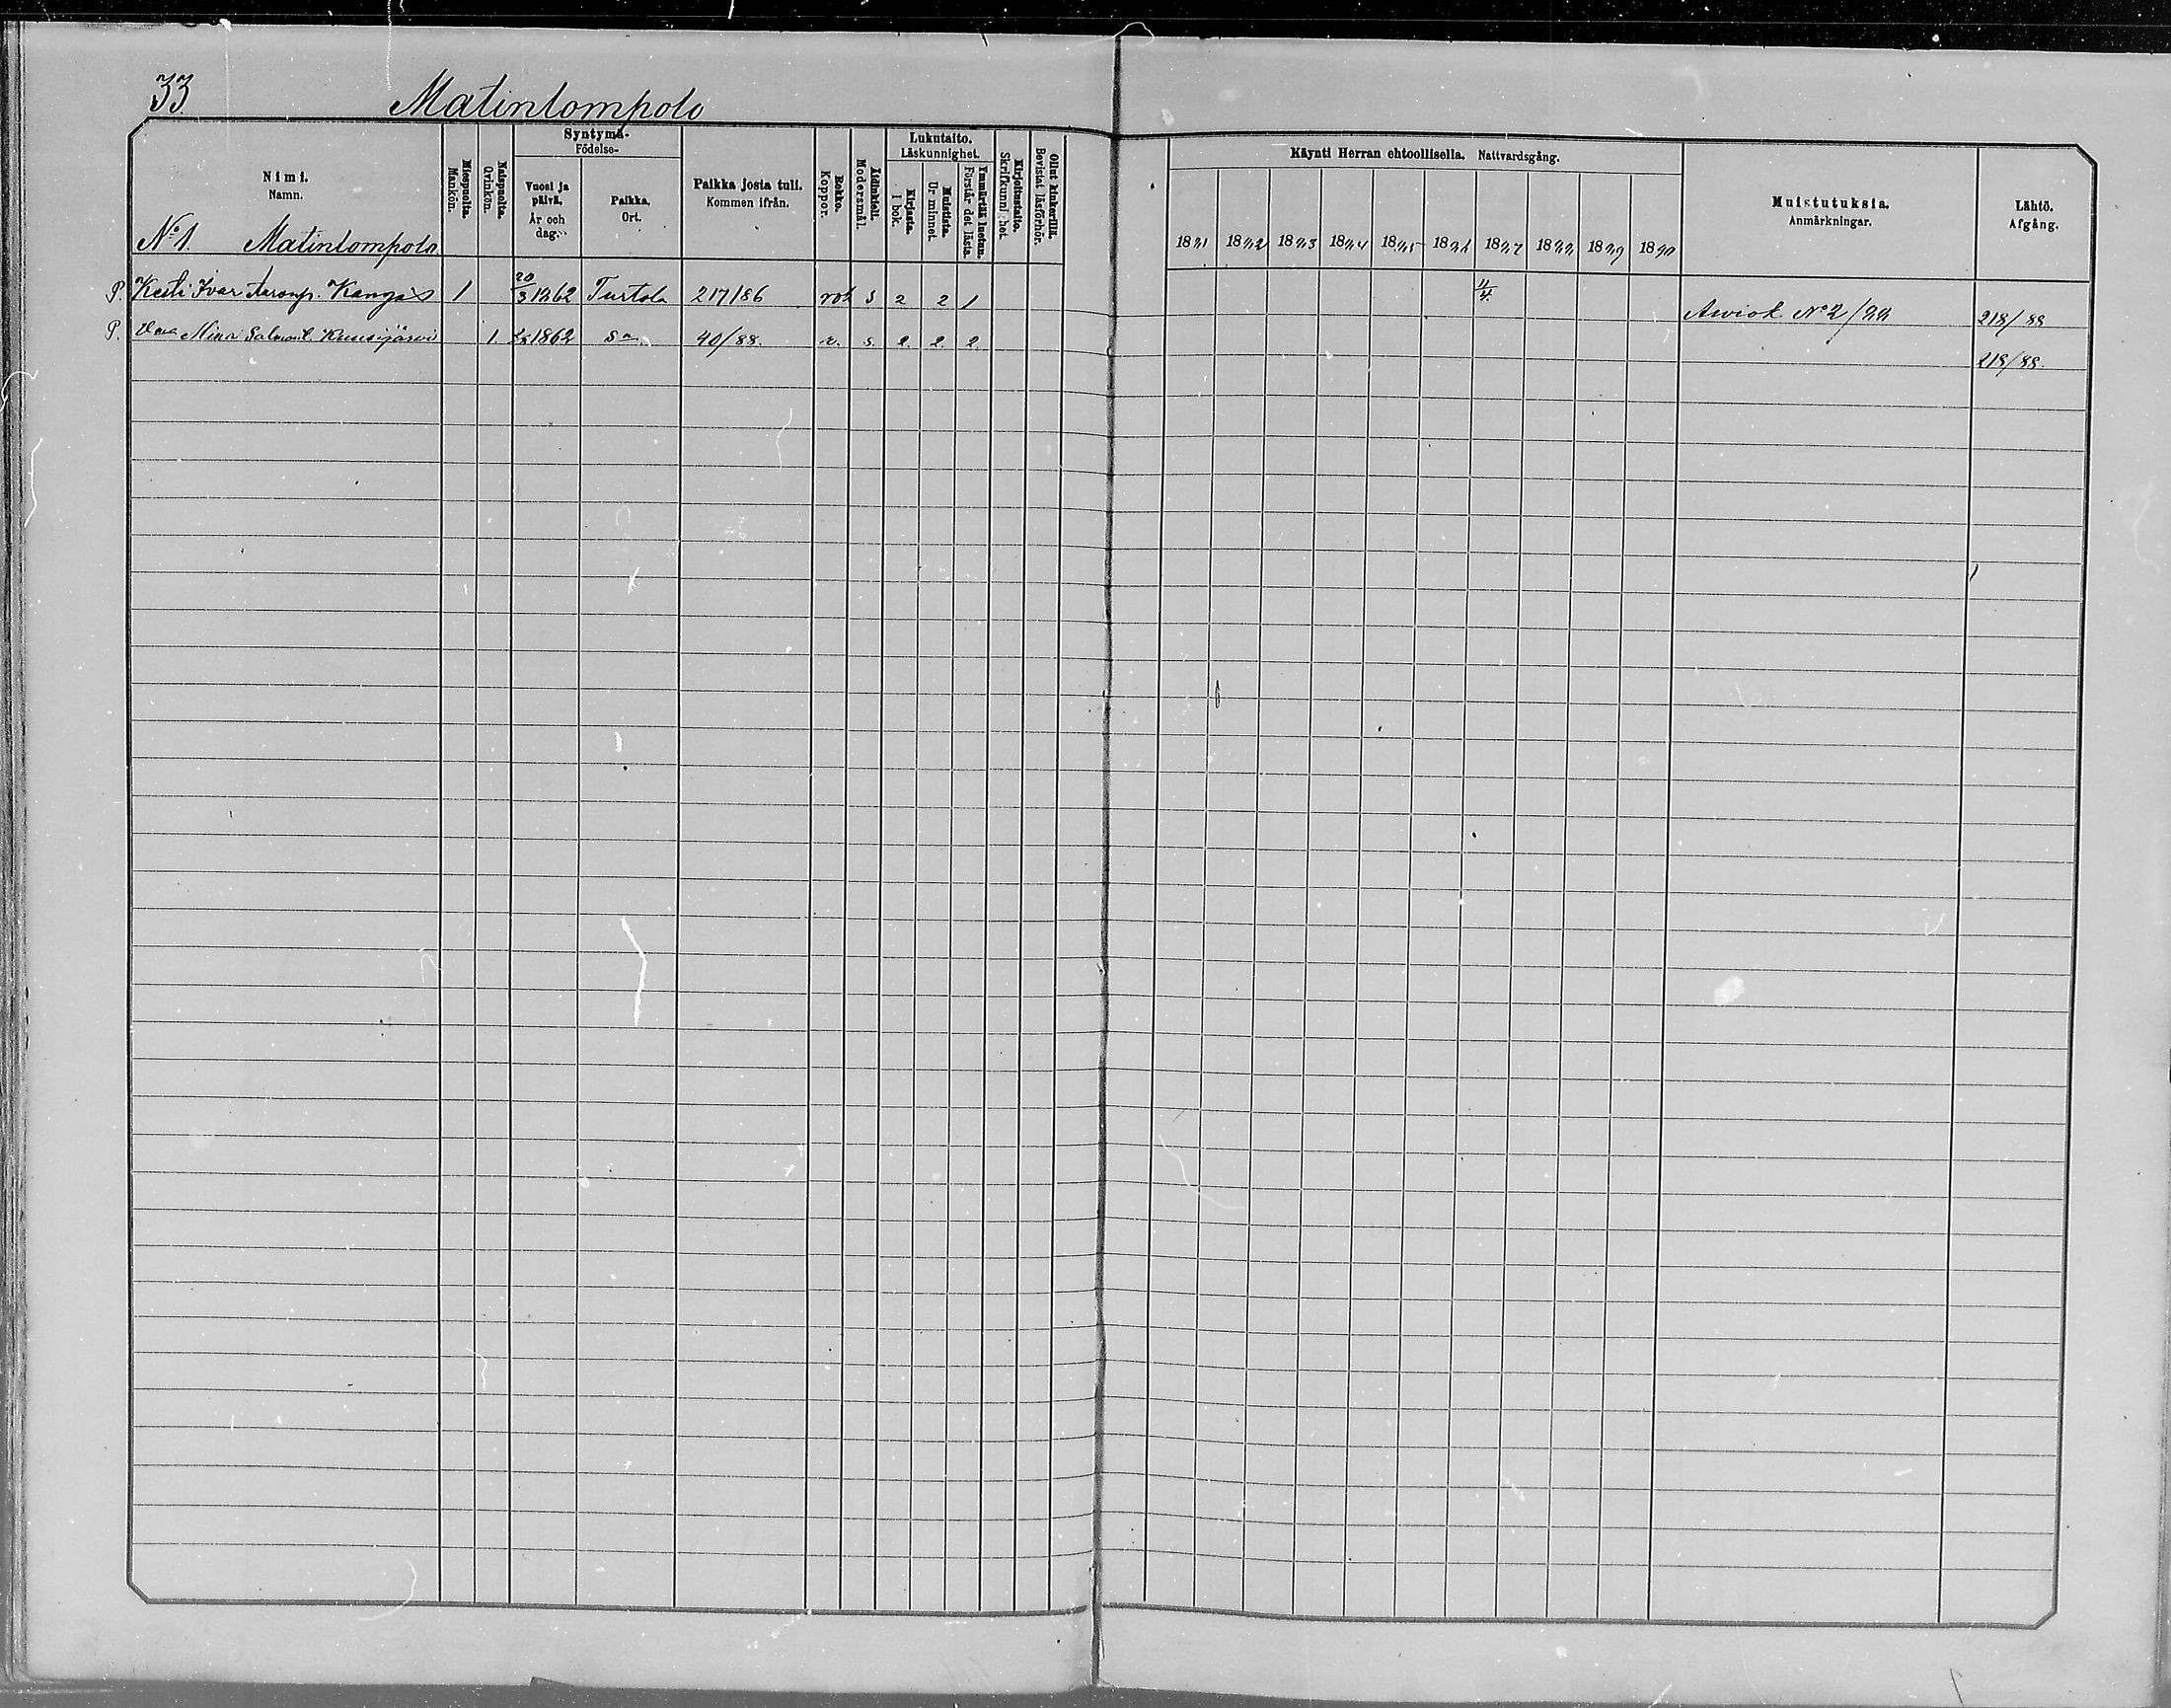 33.
Matinlompolo
Nimi.
Namn.
Miespuolta.
Mankön.
Naispuolta.
Qvinkön.
Syntymä-
Födelse-
Vuosi ja päivä.
År och dag.
Paikka.
Ort.
Paikka josta tuli.
Kommen ifrån.
Rokko.
Koppor.
Äidinkieli.
Modersmål.
Lukutaito.
Läskunnighet.
Kirjasta.
I bok.
Muistista.
Ur minnet.
Ymmärtää luetun.
Förstår det lästa.
Kirjoitustaito.
Skrifkunnighet.
Ollut kinkerillä.
Bevistat läsförhör.
Käynti Herran ehtoollisella. Nattvardsgång.
1881 1882 1883 1884 1885 1886 1887 1888 1889 1890
Muistutuksia.
Anmärkningar.
Lähtö.
Afgång.
No 1. Matinlompolo.
P. Kesti Ivar Aaronp. Kangas 1 20/3 1862 Turtola 217/86 rok s 2 2 1 11/4. No 2/88 218/88
P. Mina Salmont. Kuusijärvi 1 1862 sa. 40/88. r. s. 2. 2. 2. 218/88.